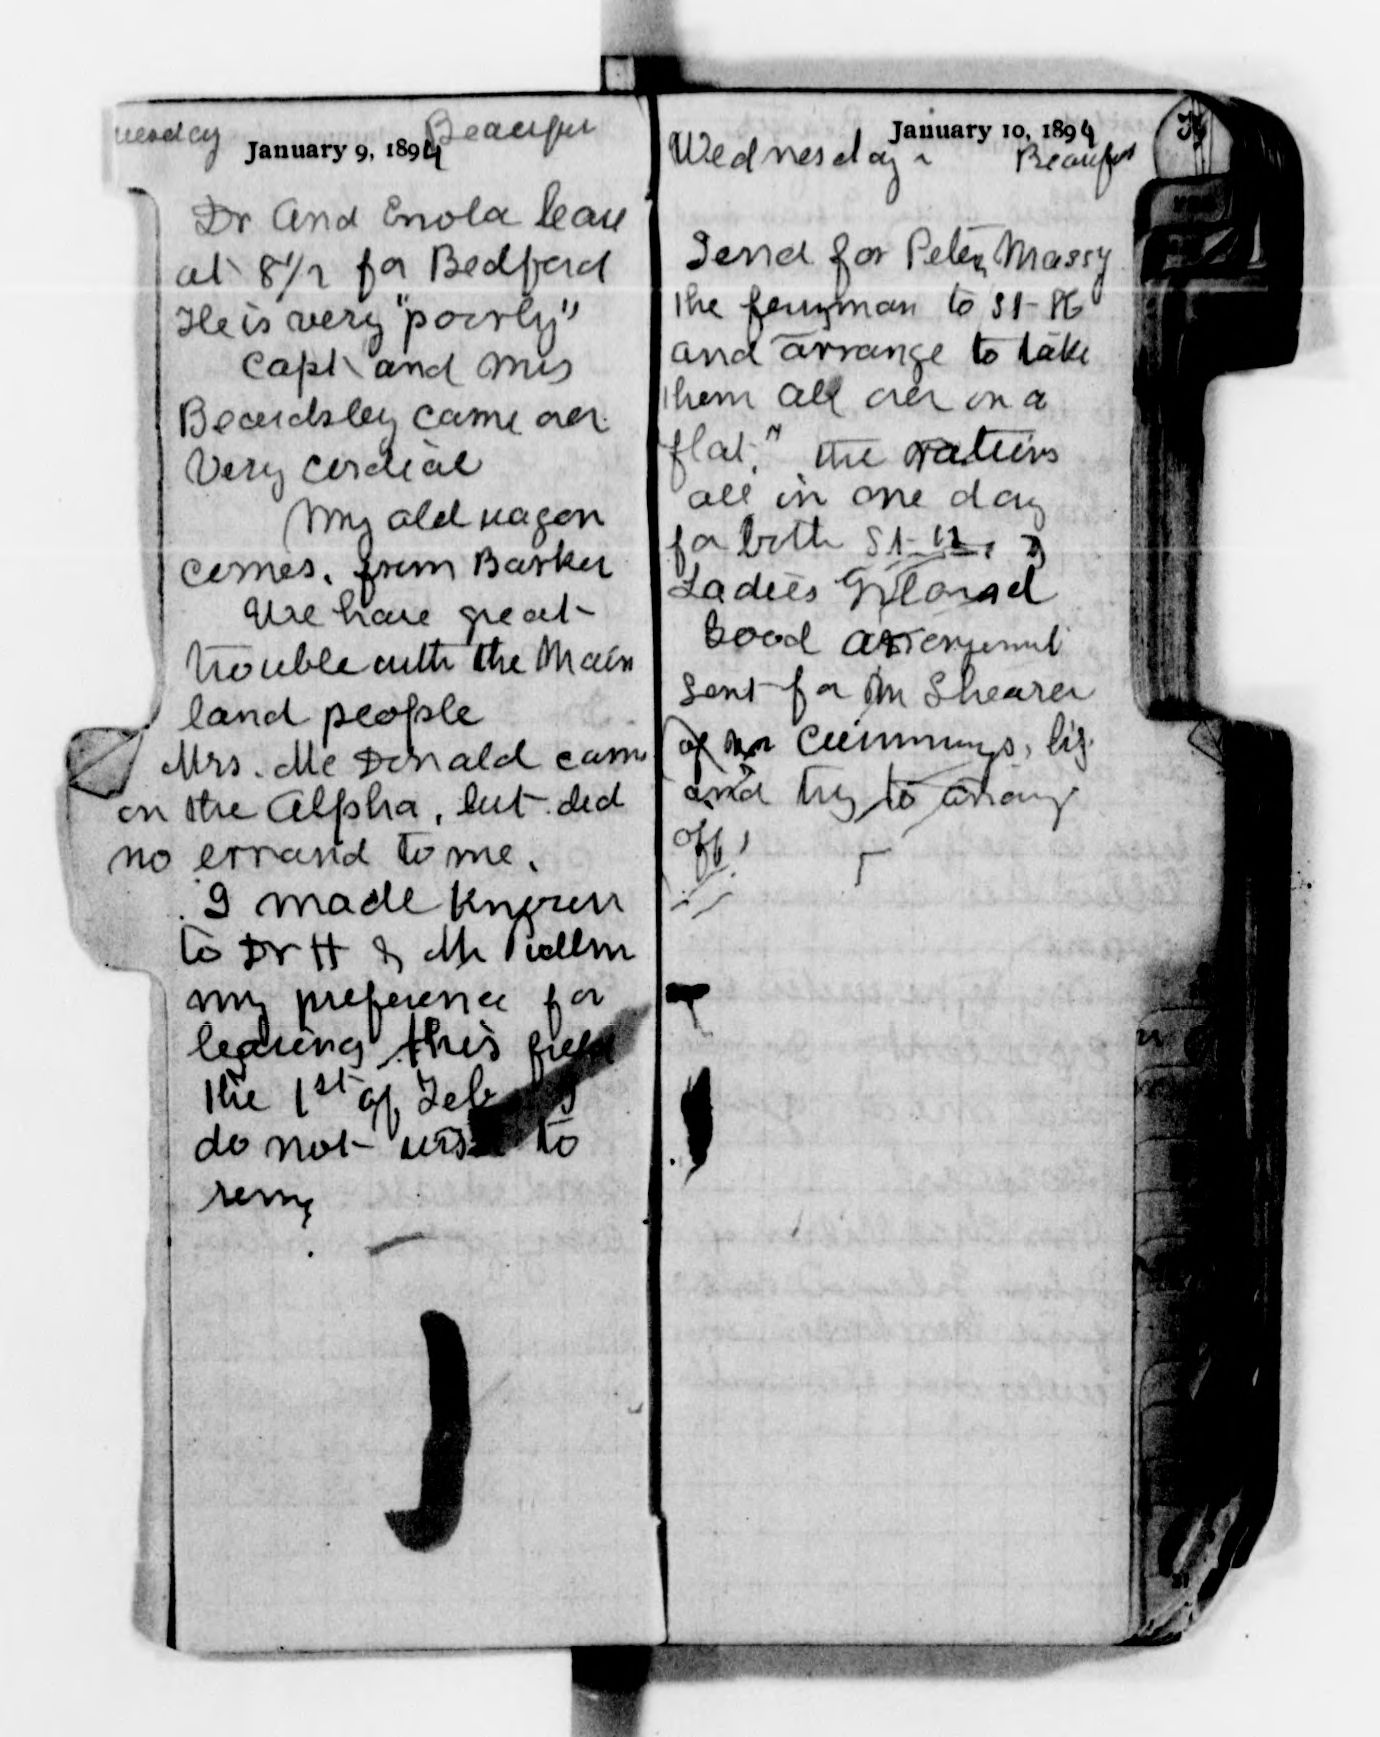 Tuesday Beaufort
January 9, 1894
Dr and Enola leave
at 8 1/2 for Bedford
He is very "poorly"
Capt and Mrs
Beardsley came over
very cordial
My old wagon
comes, from Barker
We have great
trouble with the Main
land people
Mrs. McDonald came
on the Alpha, but did
no errand to me.
I made known
to Dr H & Mr
my preference for
leaving this field
the 1st of Feb
do not wish to
January 10, 1894
Wednesday Beaufort
Send for Peter Massy
the ferryman to St H
and arrange to take
them all over on a
flat," the rations
all in one day
for both St H &
Ladies Island
Good arrangement
Sent for Mr Shearer
of Mr Cummings,
and try to arrange
off,